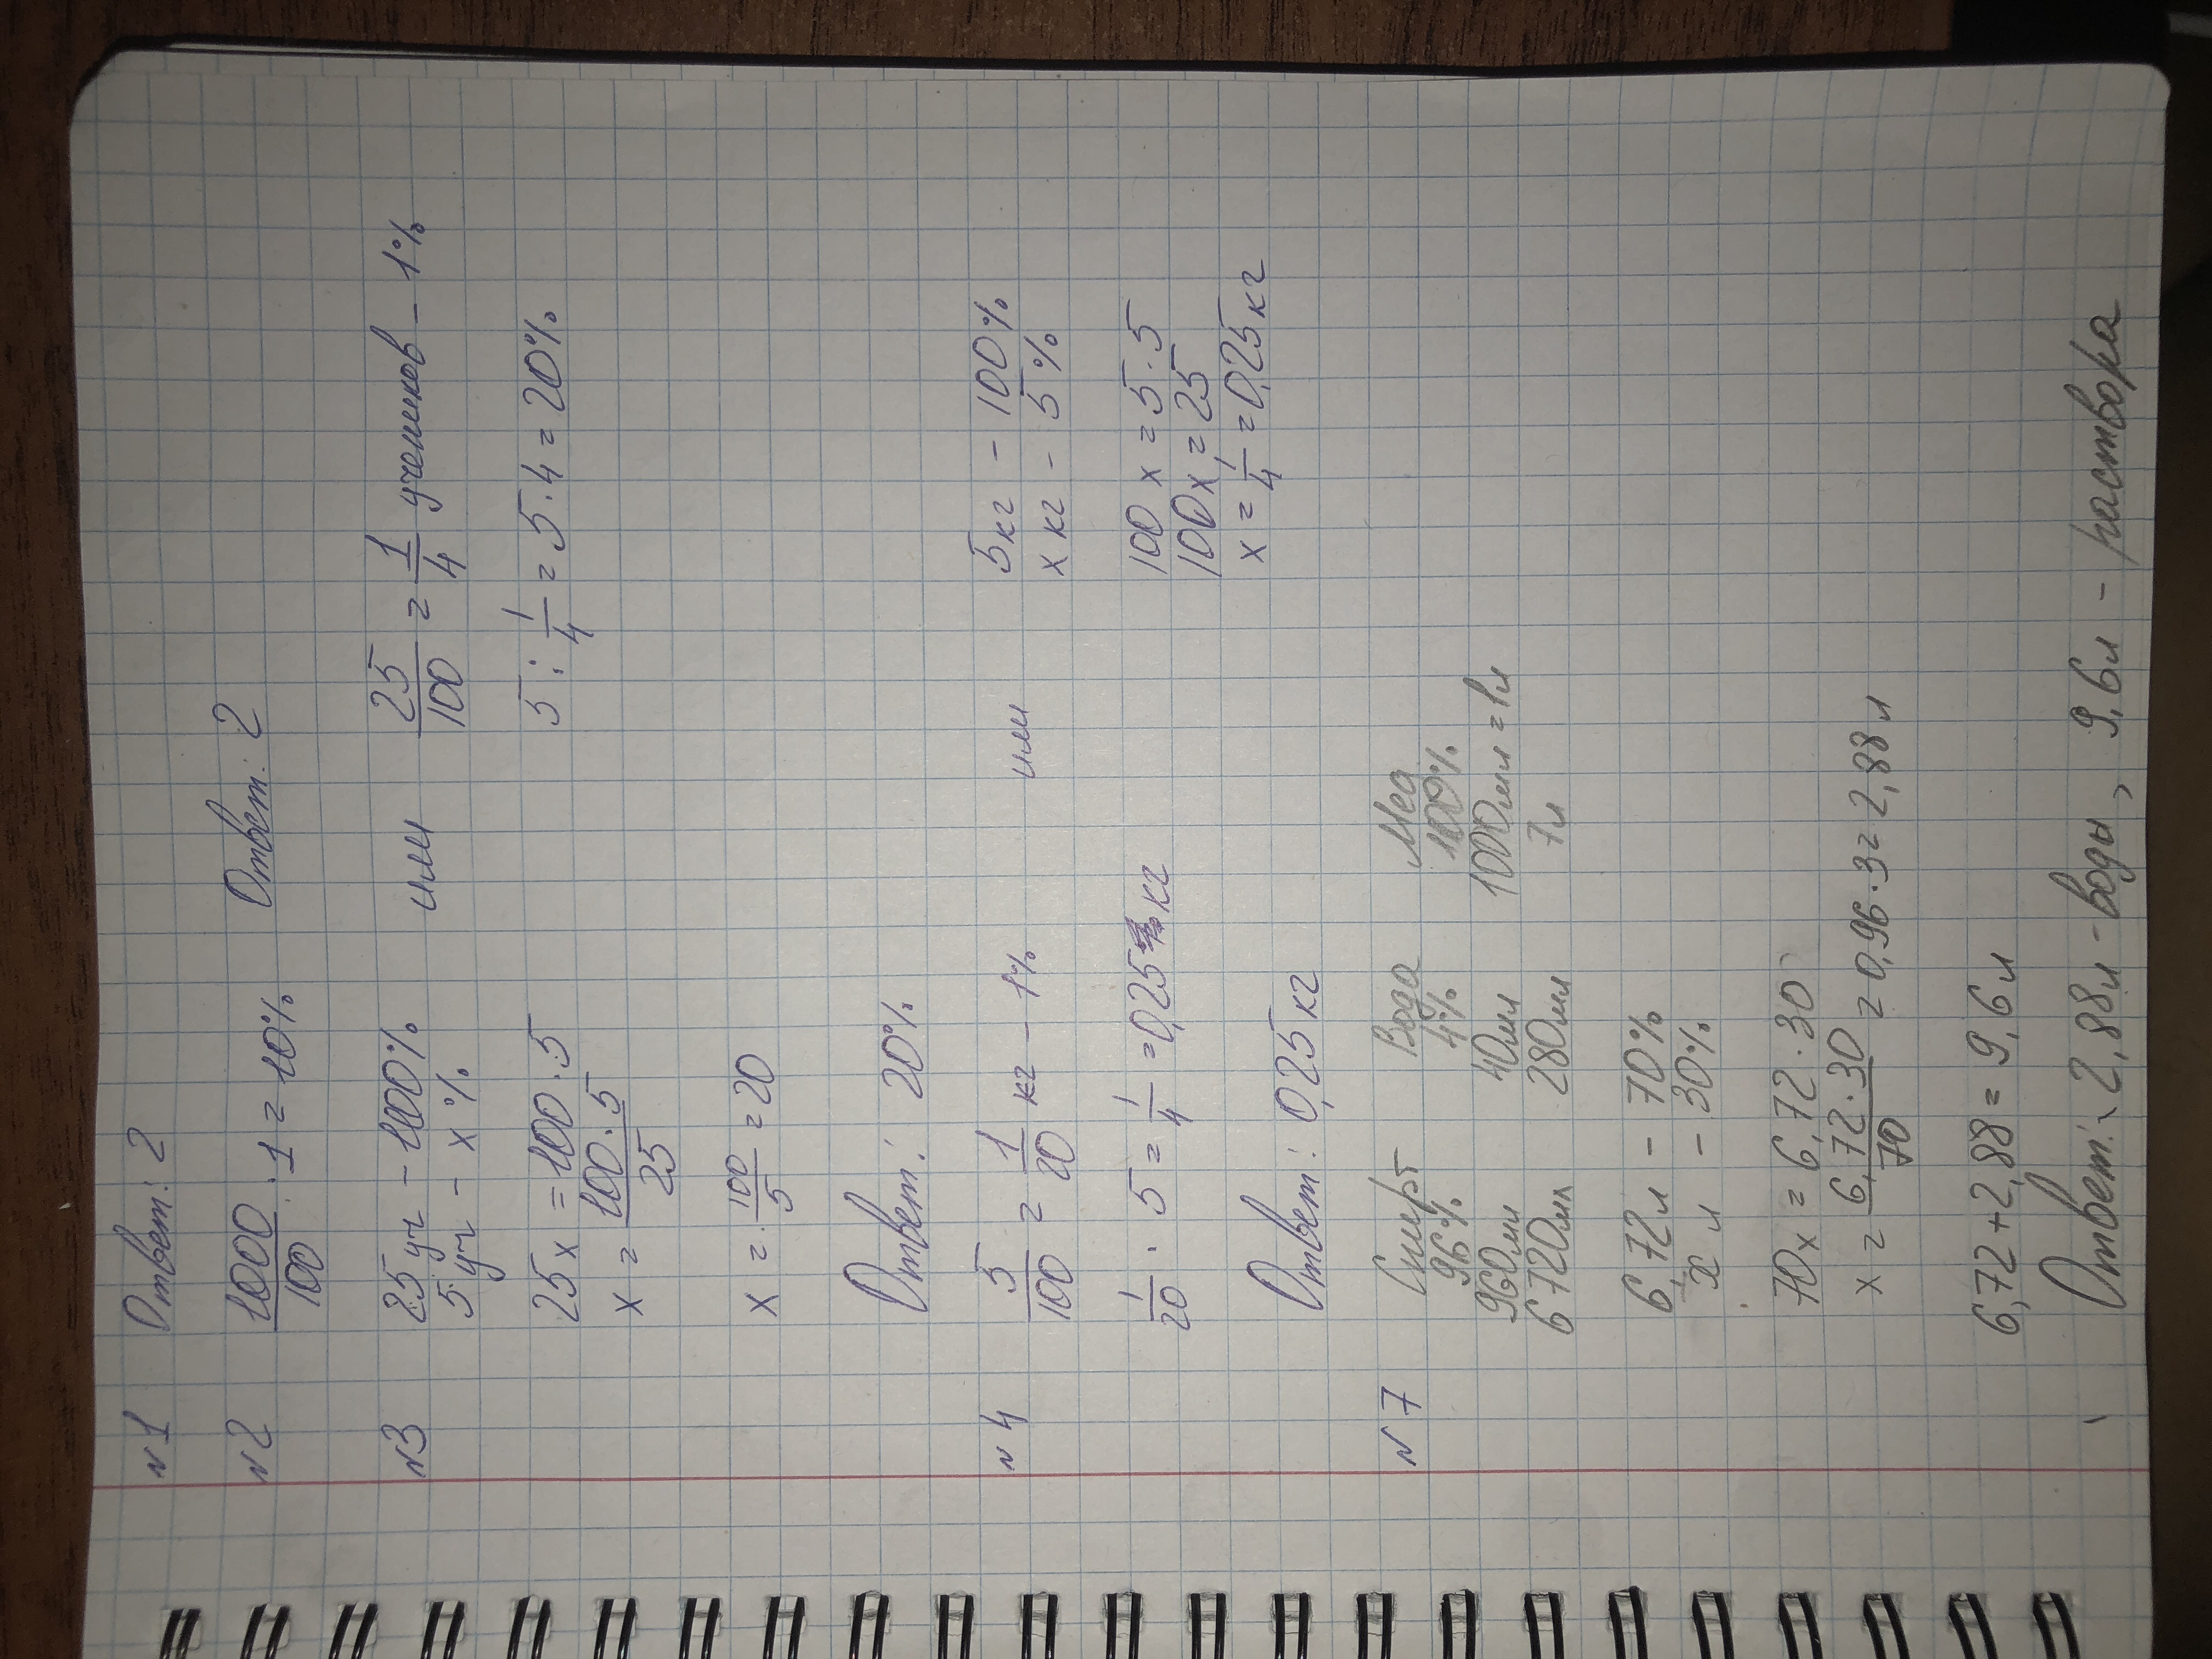 №1 Ответ: 2
№2 1000/100 · 1 = 10% Ответ: 2
№3 25 уч - 100% или 25/100 = 1/4 учеников - 1%
5 уч - x %
25x = 100 · 5 5 : 1/4 = 5 · 4 = 20%
x = 100 · 5/25
x = 100/5 = 20
Ответ: 20%
№4 5/100 = 1/20 кг - 1% или 5кг - 100%
x кг - 5%
1/20 · 5 = 1/4 = 0,25 кг 100x = 5 · 5
100x = 25
Ответ: 0,25 кг x = 1/4 = 0,25кг
№7 Спирт Вода Мед
96% 4% 100%
960мл 40мл 1000мл = 1л
6720мл 280мл 7л
6,72л - 70%
x л - 30%
70x = 6,72 · 30
x = 6,72 · 30/70 = 0,96 · 3 = 2,88л
6,72 + 2,88 = 9,6л
Ответ: 2,88л - воды, 9,6л - раствора